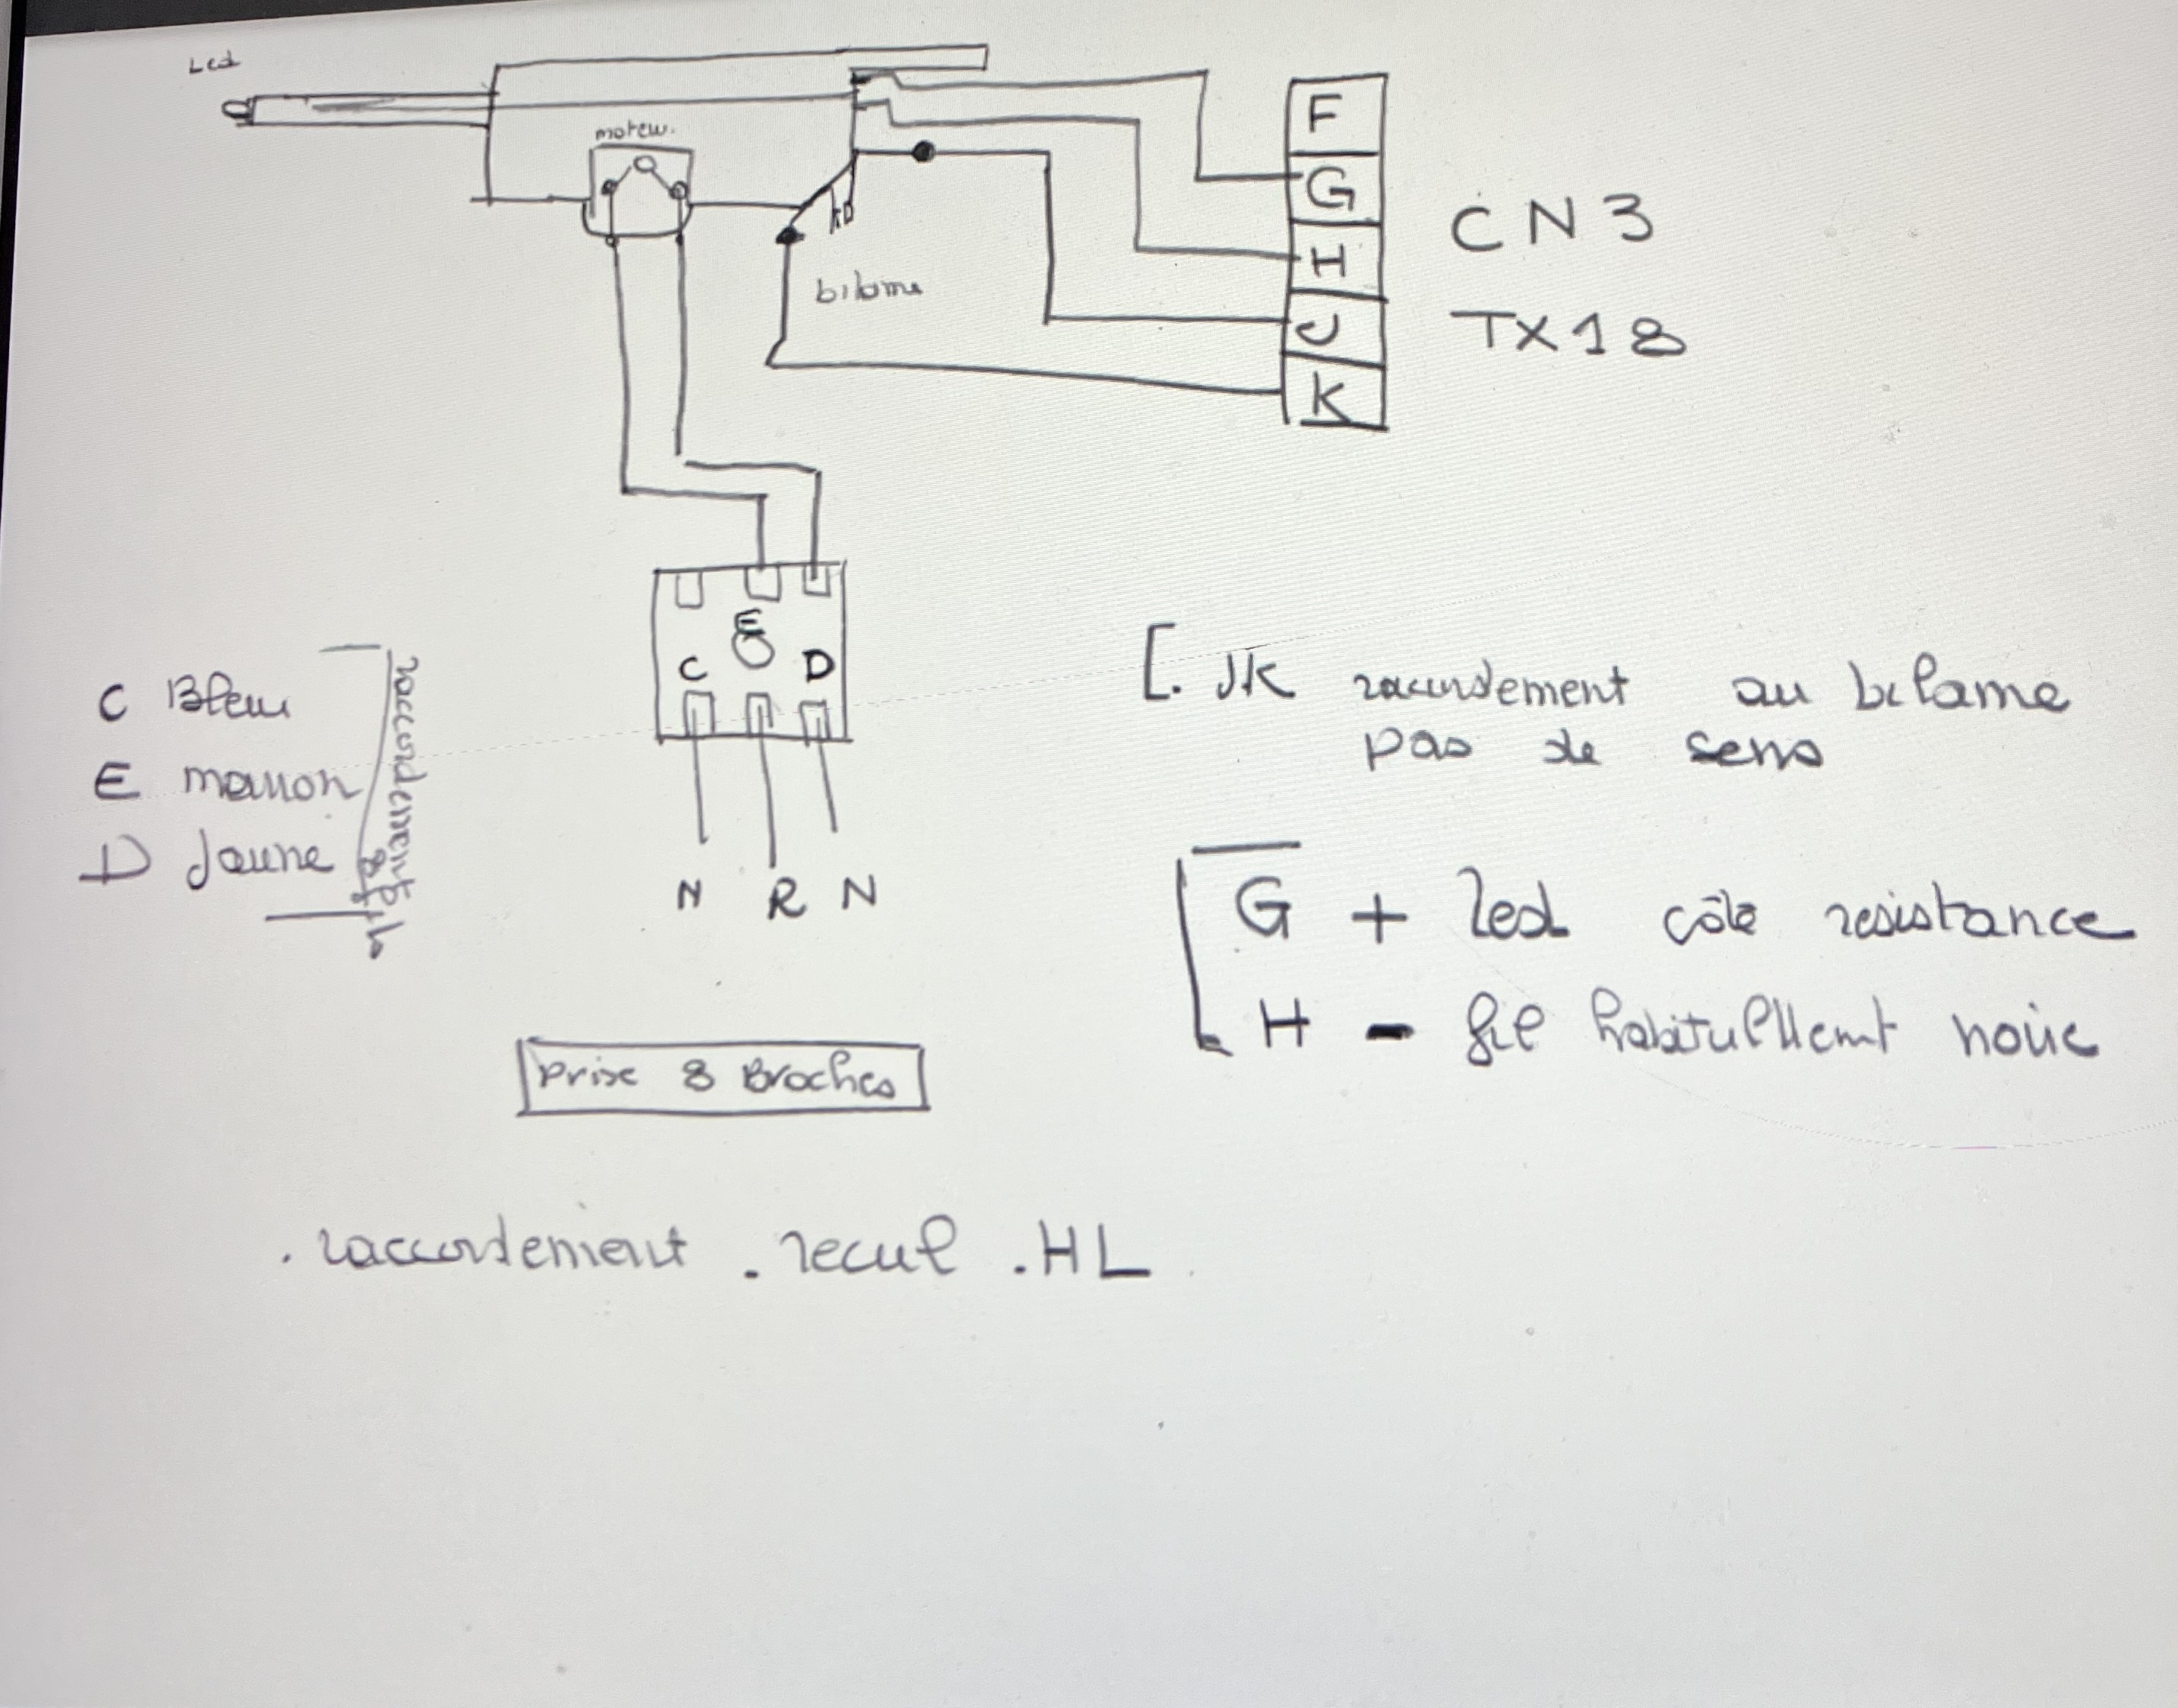 Led
moteur.
bilame
F
G
H
J
K
CN3
TX18
E
C D
N R N
C Bleu
E marron
D Jaune
raccordement
[. JK raccordement au bilame
pas de sens
G + led côté resistance
H - fil habituellemt noir
Prise 8 Broches
. raccordement . recul . HL